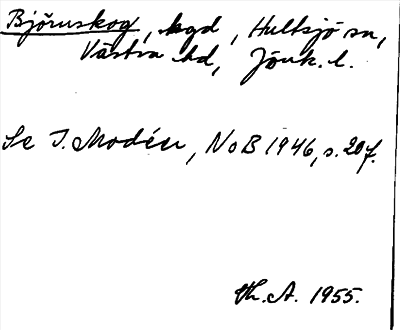 Björnskog, bgd, Hultsjö sn,
Västra hd, Jönk. l.
Se I. Modéer, NoB 1946, s. 20 f.
Th. A. 1955.